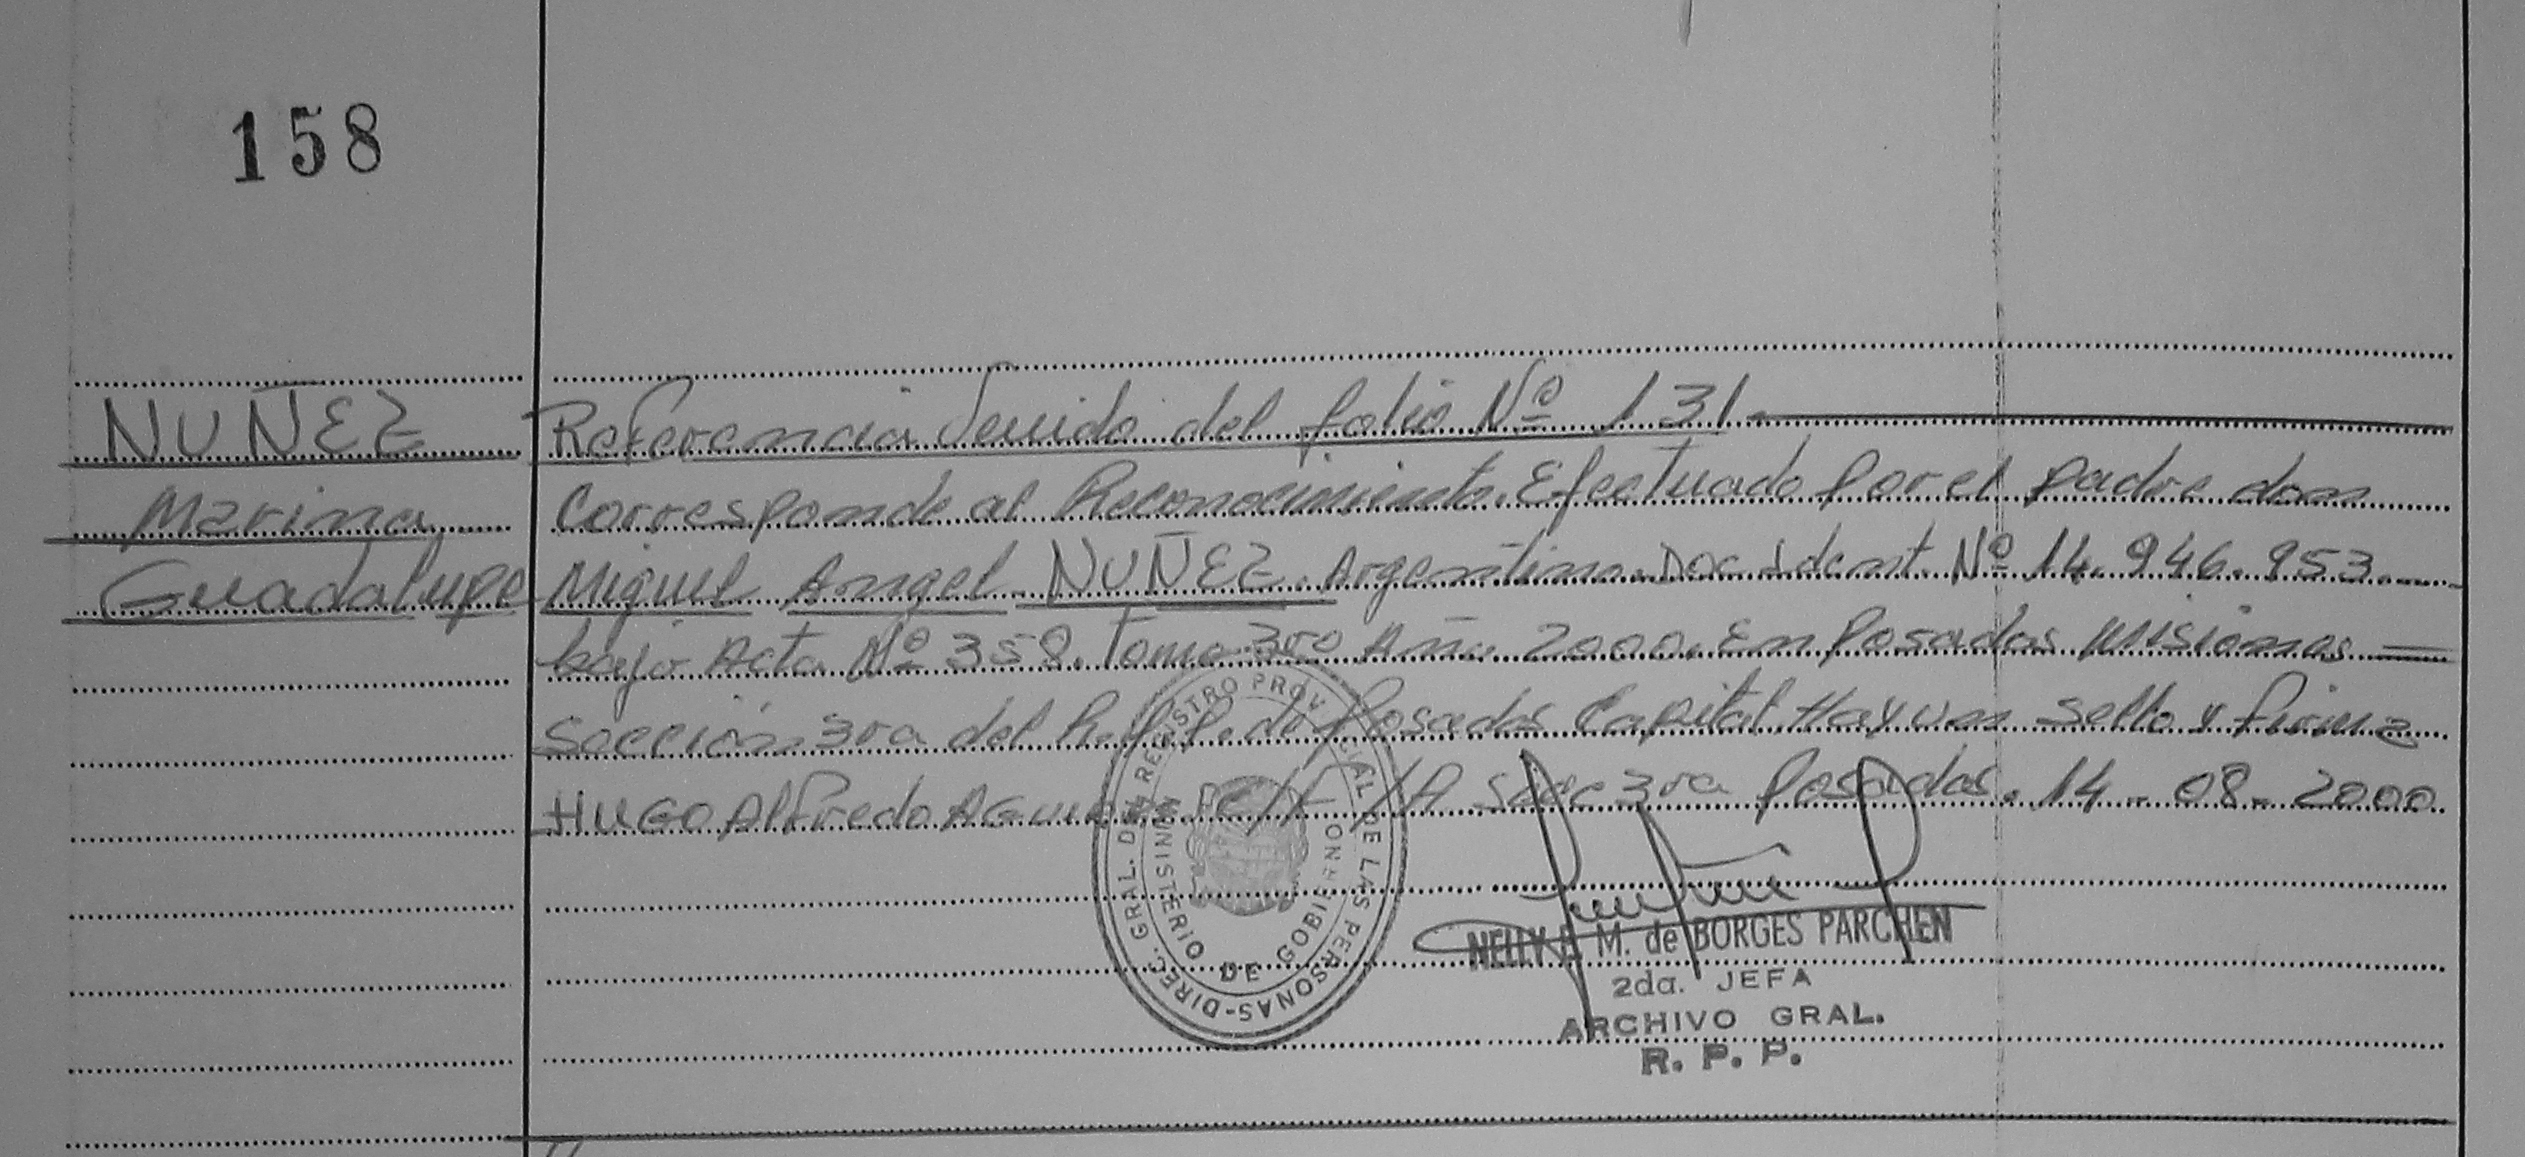 158
NUÑEZ
Marina
Guadalupe
Referencia Venido del folio Nº 131.
Corresponde al Reconocimiento. Efectuado por el padre don
Miguel Angel NUÑEZ. Argentino. Doc Ident. Nº 14.946.953.
bajo Acta Nº 358. Tomo 3ro Año 2000. En Posadas Misiones
Sección 3ra del R.P.P. de Posadas Capital. Hay un sello y firma
HUGO Alfredo Secc 3ra Posadas. 14-08-2000
DIREC. GRAL. DEL REGISTRO PROVINCIAL DE LAS PERSONAS-
MINISTERIO DE GOBIERNO
NELLY M. de BORGES PARCHEN
2da. JEFA
ARCHIVO GRAL.
R. P. P.